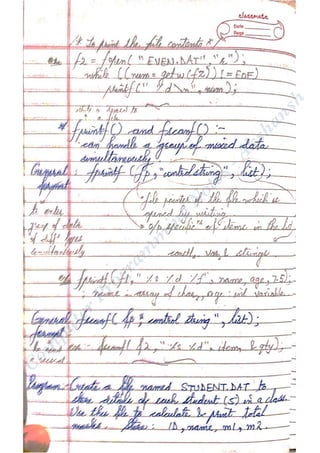 classmate
Date
Page
/* To print the file contents */
f2 = fopen("EVEN.DAT", "r");
while ((num = getw(f2)) != EOF)
printf("%d\n", num);
* fprintf() and fscanf() :-
can handle a group of mixed data
simultaneously.
General : fprintf (fp, "control string", list);
format
• file pointer of the file which is
opened by writing
to enter
group of data
of diff types
simultaneously
• o/p specific^ns of items in the list
const, var, & strings
ex: fprintf(f1, "%s %d %f", name, age, 7.5);
: name : array of char, age : int variable
General : fscanf( fp, "control string", list);
format
ex:- fscanf( f2, "%s %d", item, &qty);
Program:- Create a file named STUDENT.DAT to
store details of each student (5) in a class.
Use this file to calculate & print total
marks. Store : ID, name, m1, m2.